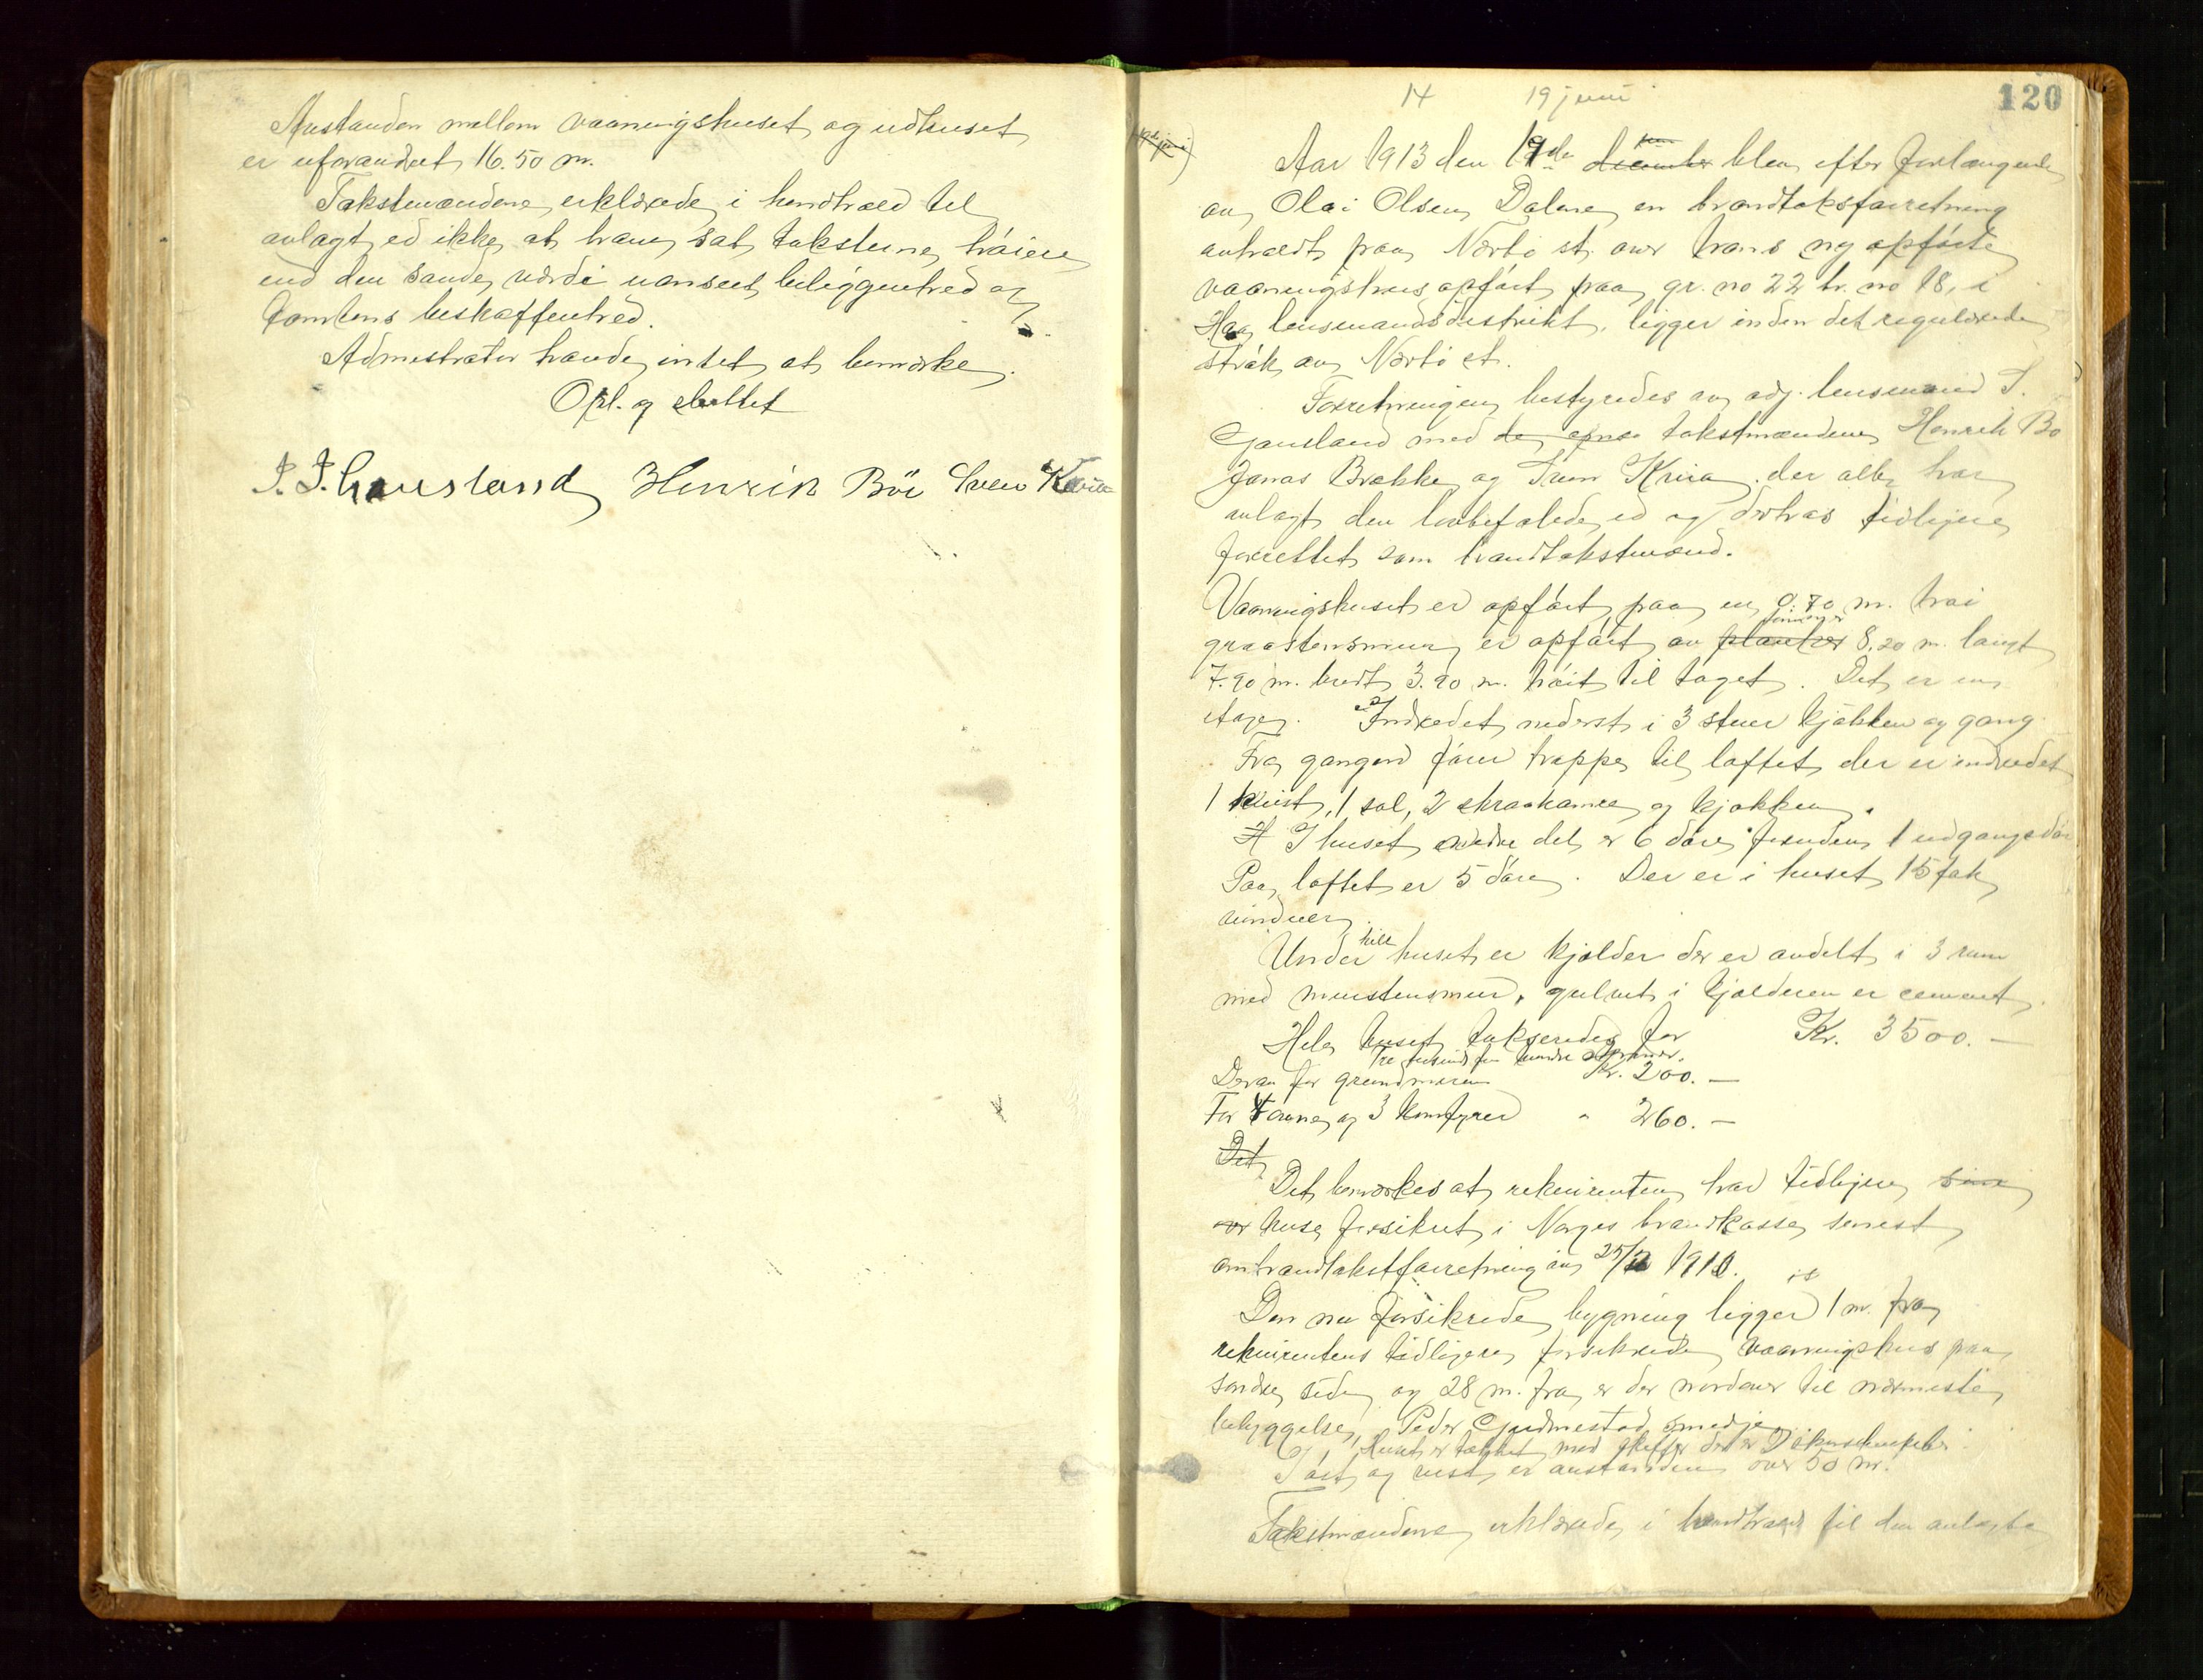 Avstanden mellem vaaningshuset og udhuset
er uforandret 16.50 m.
Takstmændene erklærede i henhold til
avlagt ed ikke at have sat taksterne høiere
end den sande værdi uanseet beliggenhed og
tomtens beskaffenhed.
Admistrator havde intet at bemærke.
Opl. og sluttet
Henrik Böe Sven Kvia
120
14 19 juni
Aar 1913 den 19de december juni blev efter forlangende
av Olai Olsen Dalane en brandtakstforretning
avholdt paa Nærbø st. over hans ny opførte
vaaningshus opført paa gr. no 22 br. no 18, i
Haa lensmandsdistrikt, ligger inden det regulerede
strøk av Nærbø st.
Forretningen bestyredes av adj. lensmand
med takstmændene Henrik Bø
Jonas Brække og Sven Kvia der alle har
avlagt den lovbefalede ed og tidligere
forrettet som brandtakstmænd.
Vaaningshuset er opført paa en 0.70 m. høi
graastensmur, er opført av planker 8,20 m. langt
7.90 m. bredt 3.90 m. høit til taget. Det er en
etage. Indredet nederst i 3 stuer kjøkken og gang
Fra gangen fører trappe til loftet der er indredet
1 kvist, 1 sal, 2 skraakamre og kjøkken.
I huset nedre del er 6 døre foruden 1 udgangsdør
Paa loftet er 5 døre. Der er i huset 15 fak
vinduer.
Under hele huset er kjælder der er avdelt i 3 rum
med murstensmur, gulvet i kjælderen er cement.
Hele huset takseredes for Kr. 3500.—
Tre tusind fem hundre kroner.
Derav for grundmuren Kr. 200.—
For 4 ovne og 3 komfyrer " 260.—
Det
Det bemærkes at rekvirenten har tidligere sine
huse forsikret i Norges brandkasse senest
omtrandtakstforretning av 25/ 1910.
Den nu forsikrede bygning ligger 1 m. fra
rekvirentens tidligere forsikrede vaaningshus paa
søndre side og 28 m. fra er der nordover til nærmeste
bebyggelse, Peder Gudmestad smedje.
Huset er tækket med skiffer
I øst og vest er avstanden over 50 m.
Takstmændene erklærede i henhold til den avlagte